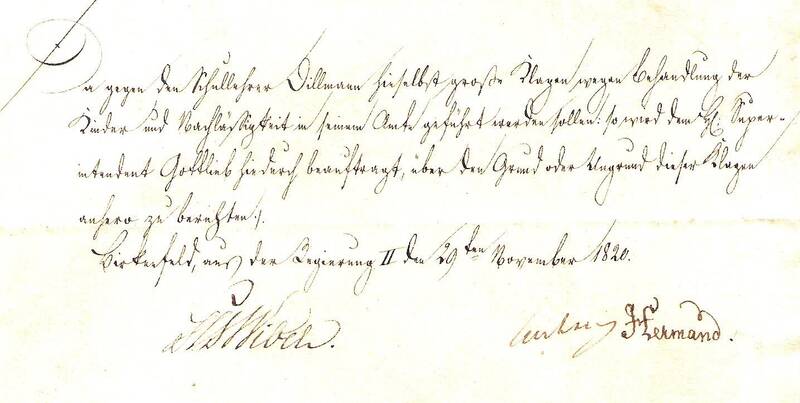 Da gegen den Schullehrer Dillmann hieselbst große Klagen wegen Behandlung der
Kinder und Nachläßigkeit in seinem Amte geführt werden sollen: so wird dem H. Super-
intendent Gottlieb hiedurch beauftragt, über den Grund oder Ungrund dieser Klagen
anhero zu berichten./.
Birkenfeld, aus der Regierung II den 29ten November 1820.
Hermand.